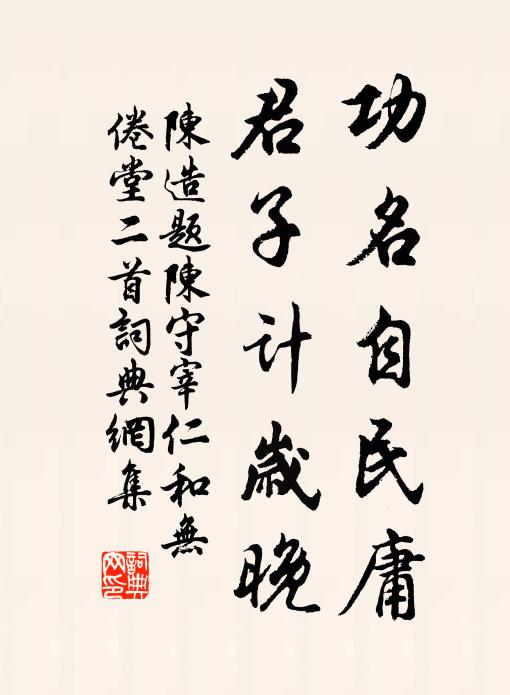 功名自民庸
君子计歲晚
陳造題陳守宰仁和無
倦堂二首詞典網集
詞典
网印